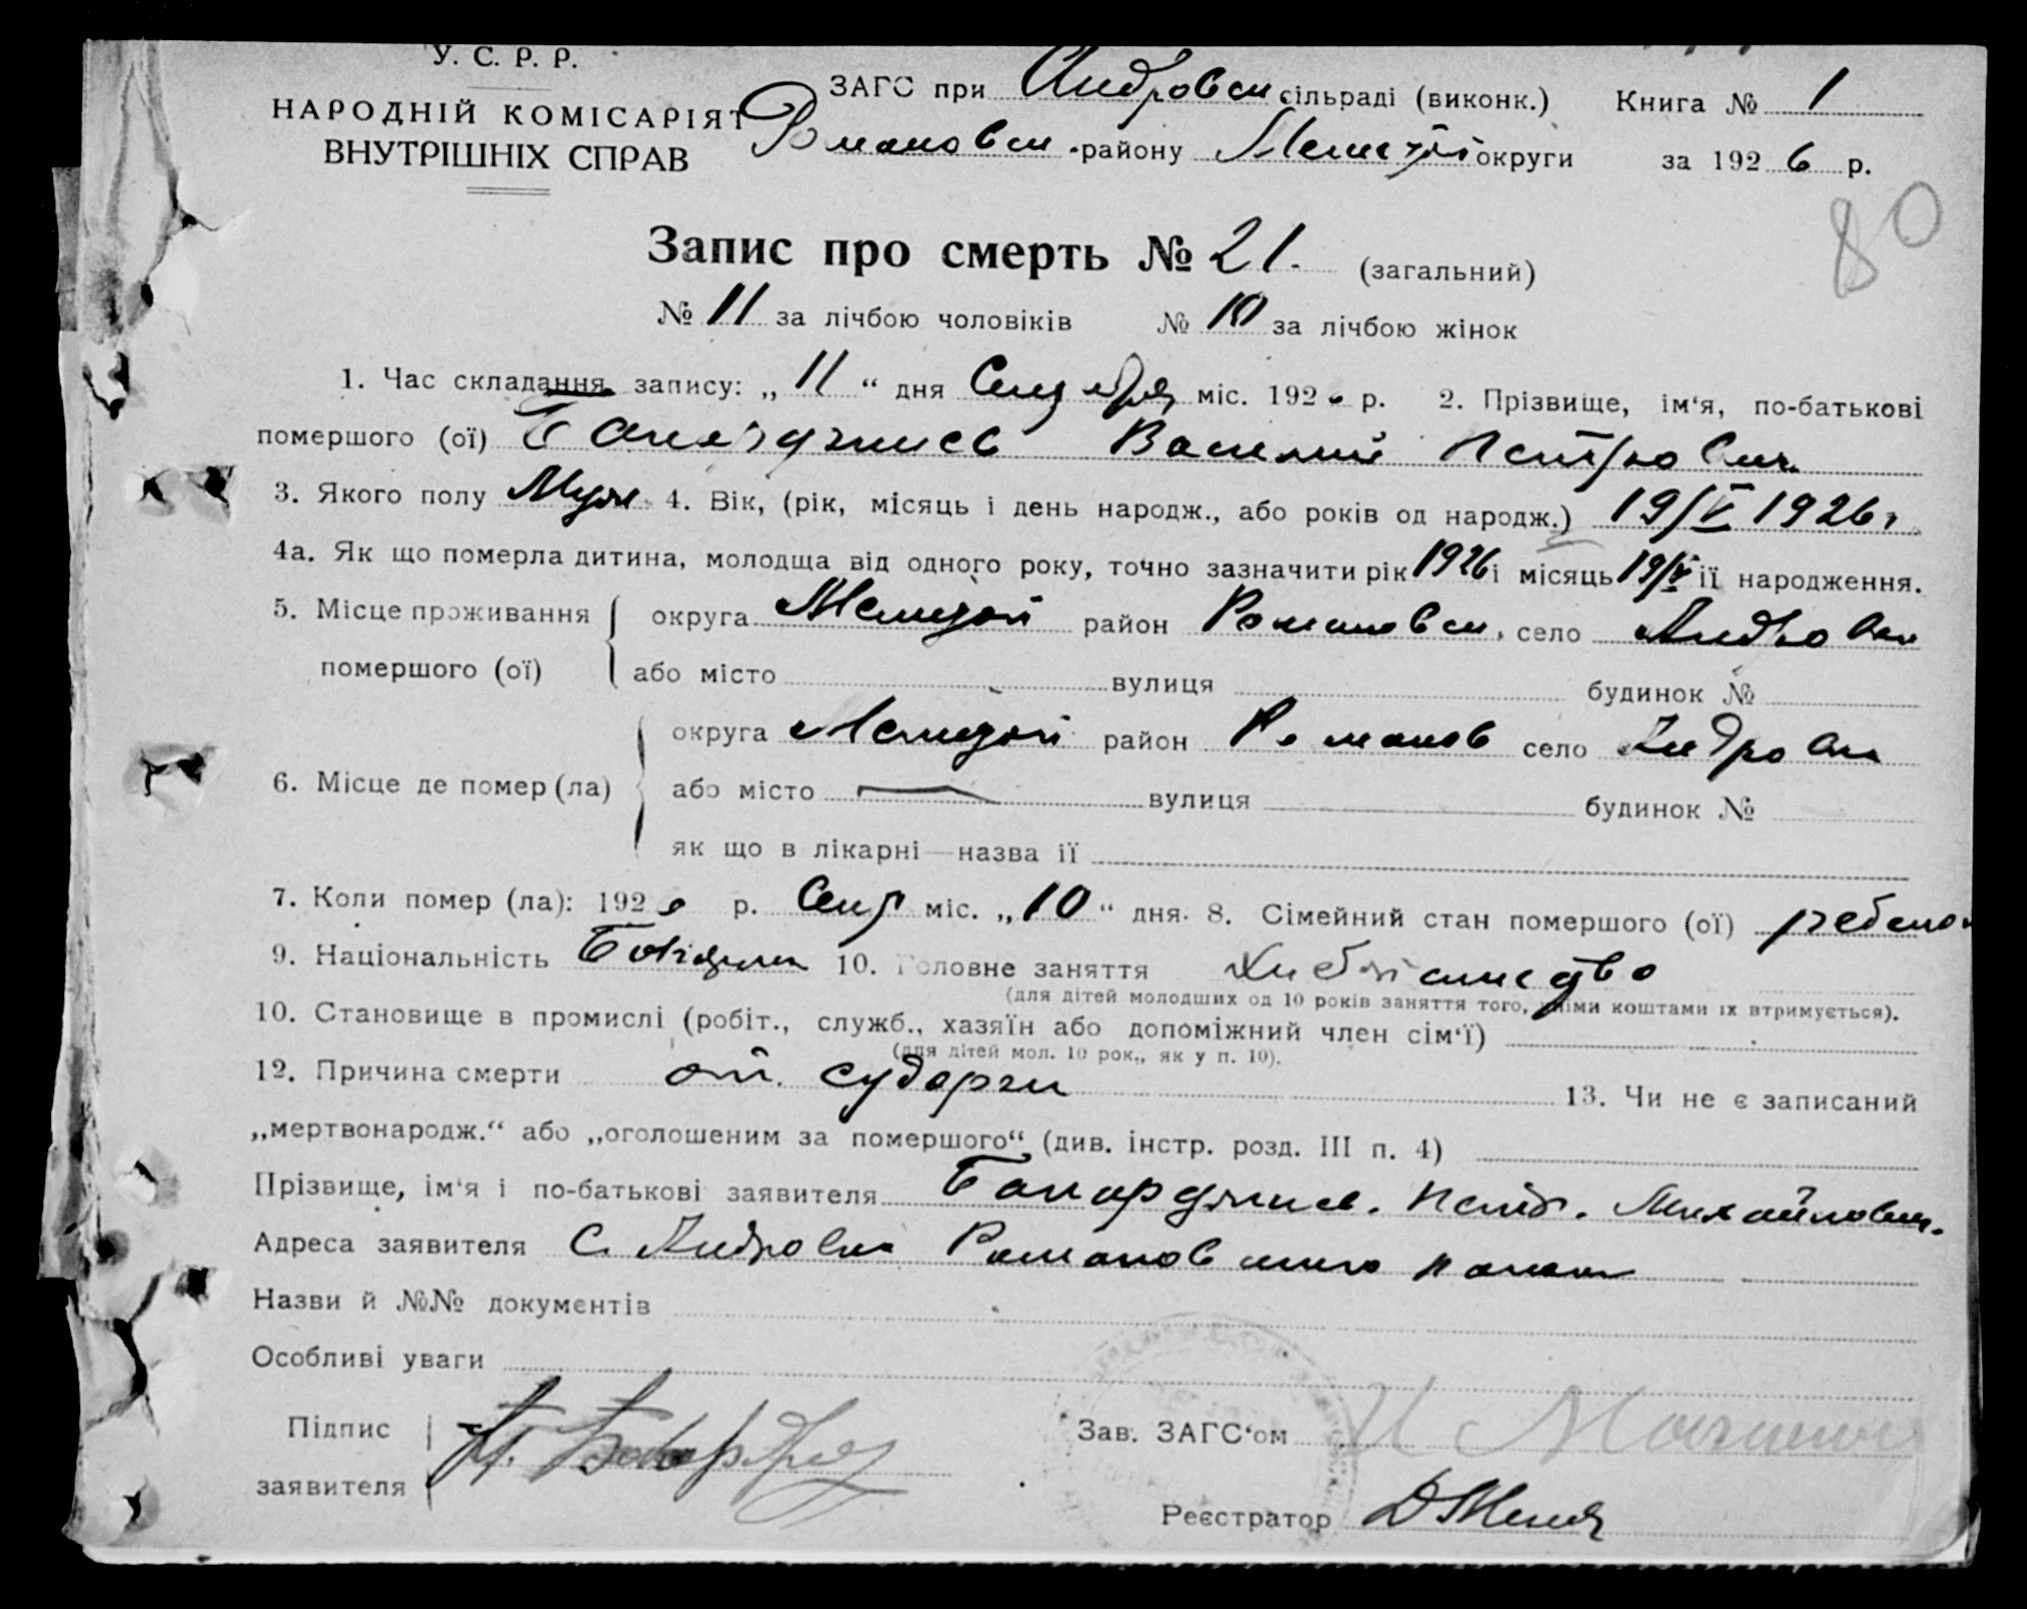 У. С. Р. Р.
НАРОДНІЙ КОМІСАРІЯТ
ВНУТРІШНІХ СПРАВ
ЗАГС при Андровск сільраді (виконк.) Книга № 1
Романовск. району Мелит округи за 192 6 р.
80
Запис про смерть № 21. (загальний)
№ 11 за лічбою чоловіків № 10 за лічбою жінок
1. Час складання запису: „ 11 “ дня Сентября міс. 192 р. 2. Прізвище, ім‘я, по-батькові
помершого (ої) Василий Петрович
3. Якого полу Муж 4. Вік, (рік, місяць і день народж., або років од народж.) 19/V 1926 г
4а. Як що померла дитина, молодща від одного року, точно зазначити рік 1926 і місяць 19/V її народження.
5. Місце проживання округа район Романовск, село Андровк
помершого (ої) або місто вулиця будинок №
округа район Романов село Андровк
6. Місце де помер (ла) або місто — вулиця будинок №
як що в лікарні—назва її
7. Коли помер (ла): 192 р. Сент міс. „ 10 “ дня. 8. Сімейний стан помершого (ої) ребенок
9. Національність 10. Головне заняття
(для дітей молодших од 10 років заняття того, чіїми коштами їх втримується).
10. Становище в промислі (робіт., служб., хазяїн або допоміжний член сім‘ї)
(для дітей мол. 10 рок., як у п. 10).
12. Причина смерти от. судорги 13. Чи не є записаний
„мертвонародж.“ або „оголошеним за помершого“ (див. інстр. розд. III п. 4)
Прізвище, ім‘я і по-батькові заявителя Петр. Михайлович.
Адреса заявителя С. Андровка Романовского
Назви й №№ документів
Особливі уваги
Підпис
заявителя
Зав. ЗАГС‘ом
Реєстратор